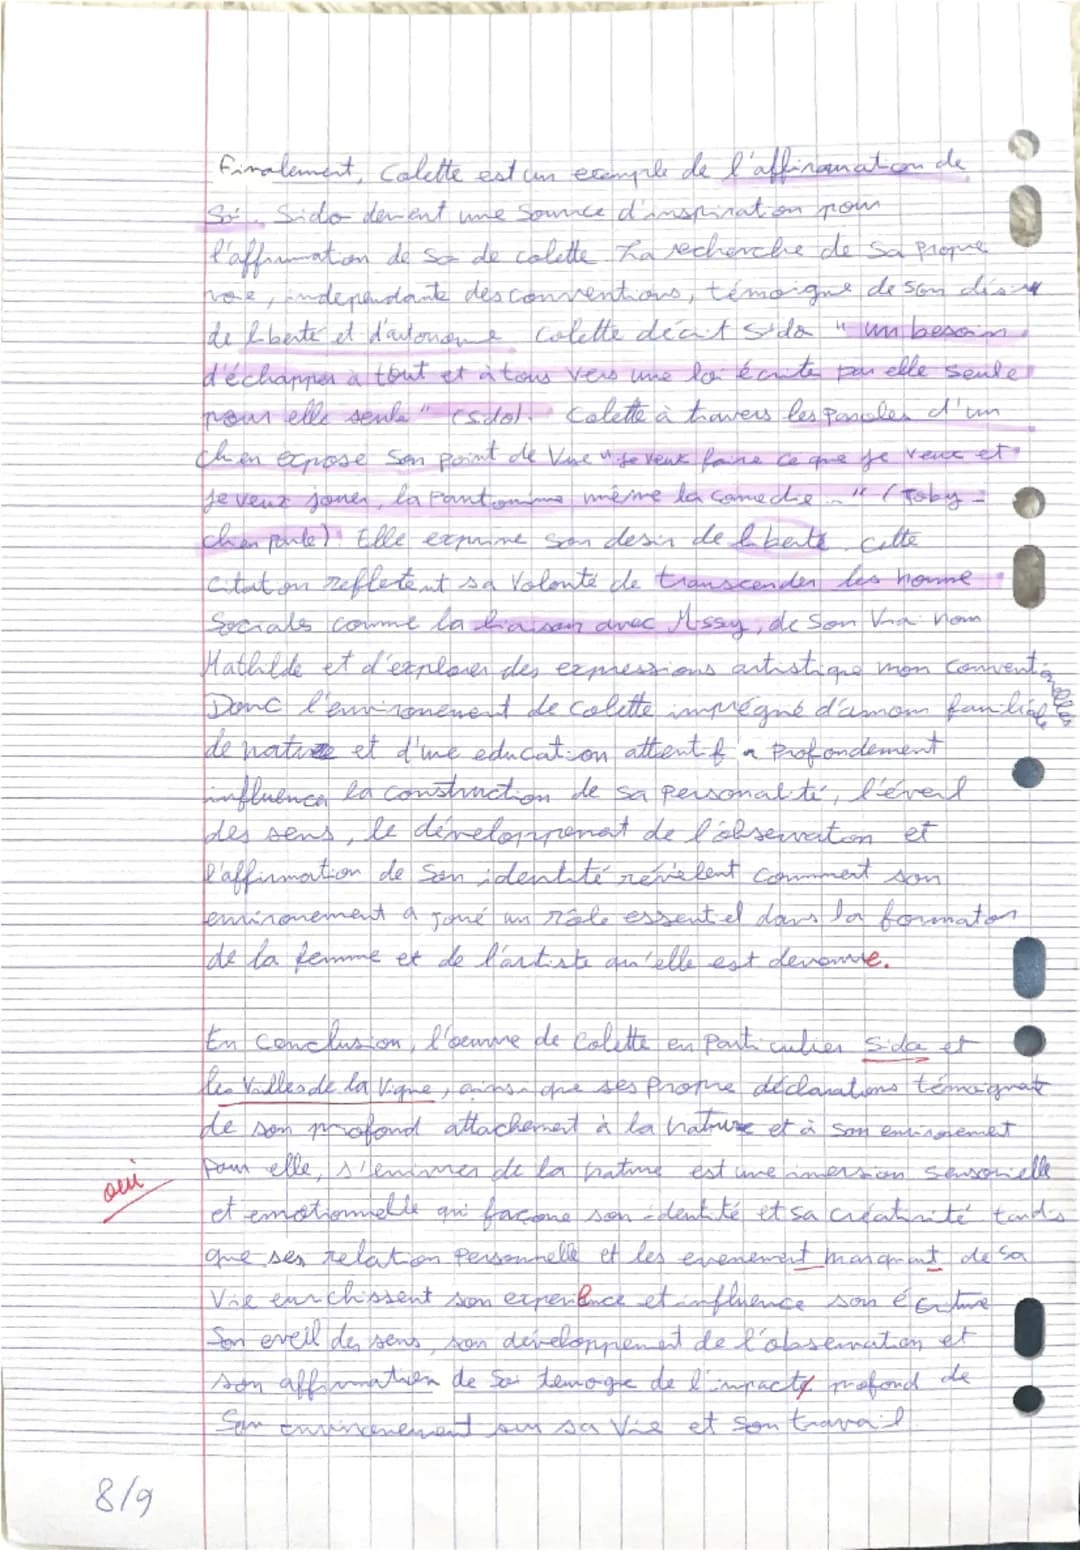 Finalement, Colette est un exemple de l'affirmation de
Soi. Sido devient une source d'inspiration pour
l'affirmation de soi de colette. La recherche de sa propre
voie, independante des conventions, témoigne de son
de liberté et d'autonomie Colette décrit Sido " un besoin
d'échapper à tout et à tous vers une loi écrite par elle seule
pour elle seule" (Sido). Colette à travers les paroles d'un
chien expose son point de vue "je veux faire ce que je veux et
je veux jouer, la Pantomime même la comedie..." (Toby-
chien parle). Elle exprime son desir de liberté. Cette
citation refletent sa volonté de transcender les norme
Sociales comme la liaison avec Missy, de son vrai nom
Mathilde et d'explorer des expressions artistique non
Donc l'environement de colette imprégné d'amour familial
de nature et d'une education attentif a profondement
influencer la construction de sa personalité, l'éveil
des sens, le développement de l'observation et
l'affirmation de son identité révèlent comment son
environement a joué un rôle essentiel dans la formation
de la femme et de l'artiste qu'elle est devenue.
En conclusion, l'oeuvre de Colette en particulier Sido et
les Vrilles de la Vigne, ainsi que ses propre déclarations témoignent
de son profond attachement à la nature et à son environement
Pour elle, s'enivrer de la nature est une imersion sensorielle
oui
et emotionnelle qui façone son identité et sa créativité tandis
que ses relation personnelle et les evenement marquant de sa
vie enrichissent son experience et influence son écriture
Son eveil des sens, son développement de l'observation et
son affirmation de soi temoge de l'impact profond de
Son environement sur sa vie et son travail.
8/9